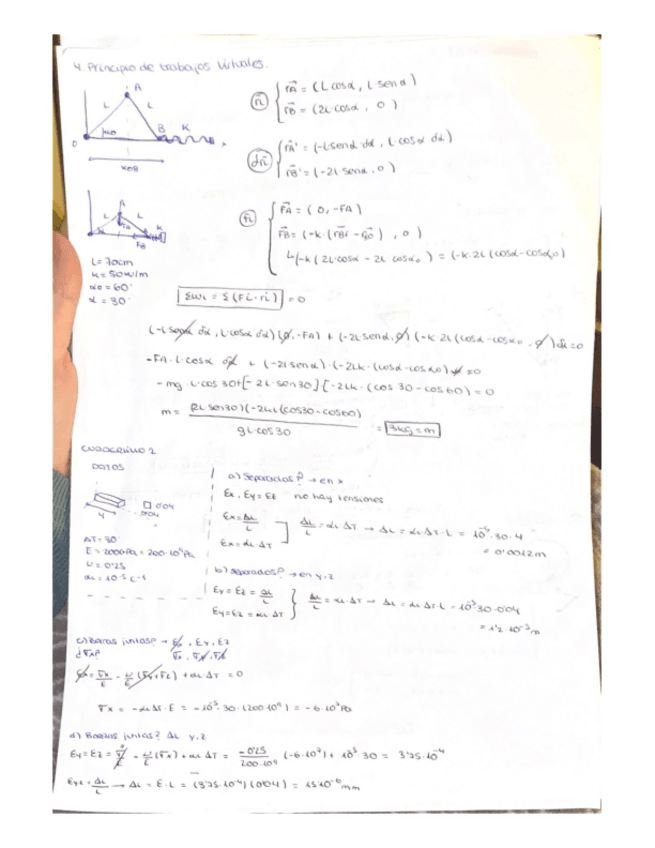 4. Principio de trabajos Virtuales.
A
L L
B K
αo
O
x
XOB
ri { rA = (L cosα, L senα)
rB = (2L cosα, 0)
dri { rA' = (-L senα dα, L cosα dα)
rB' = (-2L senα, 0)
Fi { FA = (0, -FA)
FB = (-k·(rBi - rBo), 0)
↳(-k(2L·cosα - 2L cosαo) = (-k·2L(cosα-cosαo)
A
L L
FA
K
FB
L = 70cm
K = 50N/m
αo = 60°
α = 30°
ΣWi = Σ(Fi·ri) = 0
(-L senα dα, L cosα dα)(0, -FA) + (-2L senα, 0)(-k 2L(cosα-cosαo, 0)dα = 0
-FA·L·cosα dα + (-2L senα)·(-2Lk·(cosα-cosαo) = 0
-mg·L·cos30+[-2L·sen30]·[-2Lk·(cos30-cos60) = 0
m = (2L sen30)(-2kL(cos30-cos60) / gL·cos30 = 3kg = m
CUADERNILLO 2
DATOS
4
0'04
0'04
ΔT = 30
E = 200GPa = 200·10⁹ Pa
ν = 0'25
αL = 10⁻⁵ C⁻¹
a) Separadas? → en x
εx, εy = εz no hay tensiones
εx = ΔL/L
εx = αL·ΔT
ΔL/L = αL·ΔT → ΔL = αL·ΔT·L = 10⁻⁵·30·4
= 0'0012m
b) separadas? → en y, z
εy = εz = ΔL/L
εy = εz = αL·ΔT
ΔL/L = αL·ΔT → ΔL = αL·ΔT·L = 10⁻⁵ 30·0'04
= 1'2·10⁻⁵ m
c) Barras juntas? → εx, εy, εz
¿σx? σx, σy, σz
εx = σx/E - ν/E (σy+σz) + αL ΔT = 0
σx = -αL ΔT·E = -10⁻⁵·30·(200·10⁹) = -6·10⁷ Pa
d) Barras juntas? ΔL y, z
εy = εz = σy/E - ν/E (σx) + αL ΔT = -0'25/200·10⁹ (-6·10⁷) + 10⁻⁵·30 = 3'75·10⁻⁴
εy,z = ΔL/L → ΔL = ε·L = (3'75·10⁻⁴)(0'04) = 15·10⁻⁶ mm